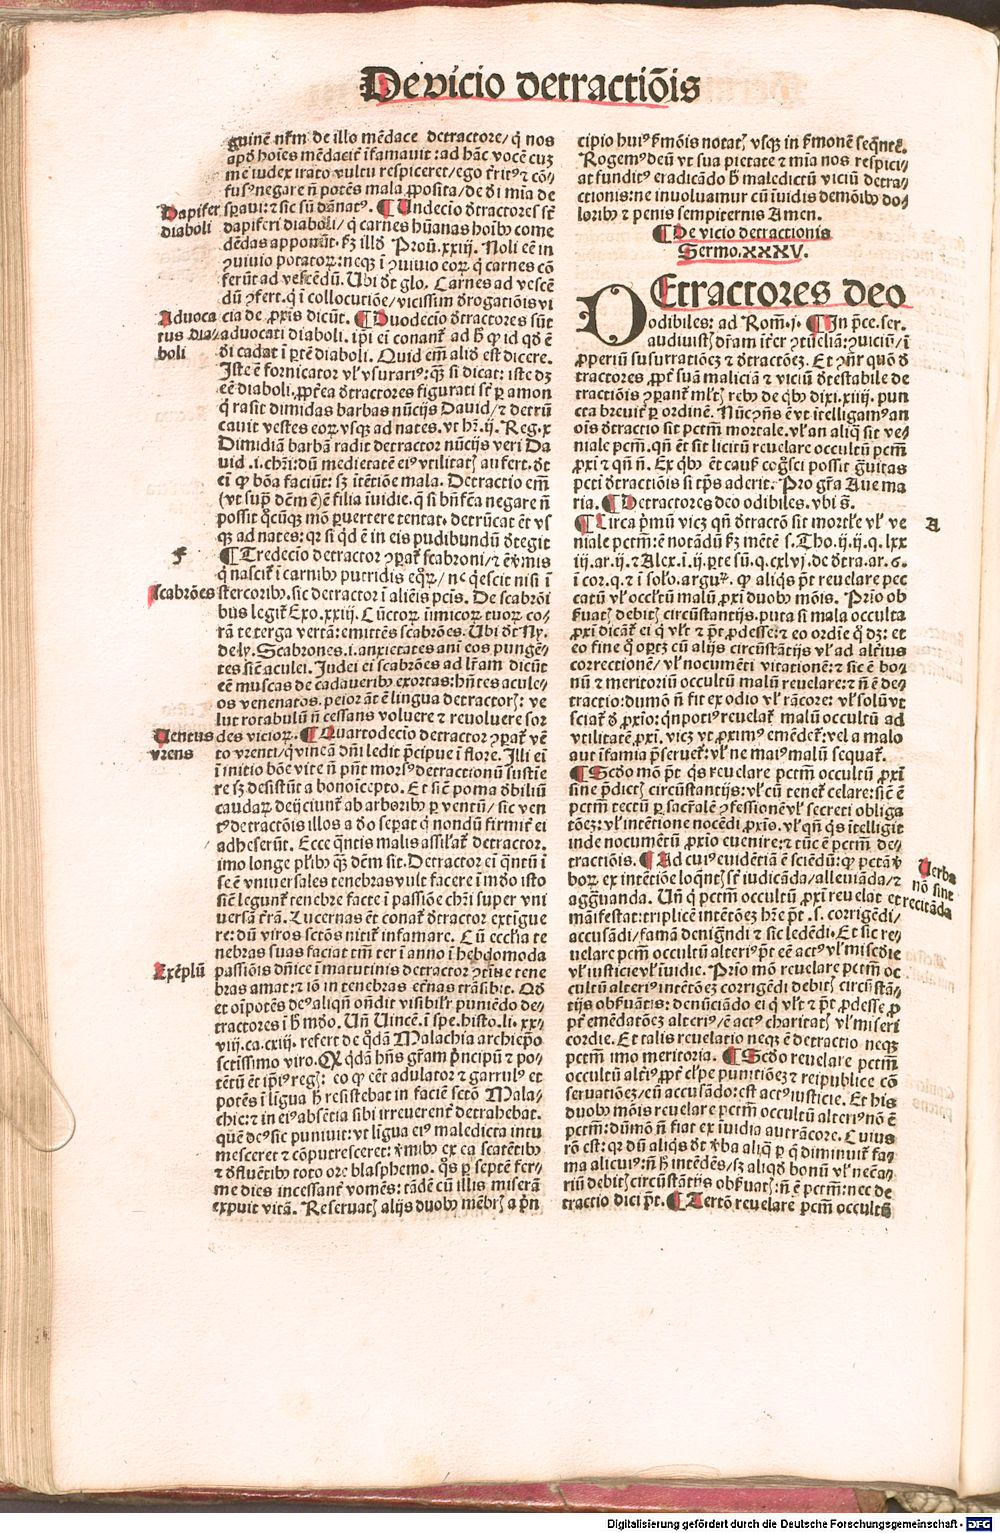 De vicio detractiōis
guinē nr̄m de illo mēdace detractore/ q̇ nos
apd̓ hoīes mēdacit̓ īfamauit: ad hāc vocē cuȝ
me iudex irato vultu respiceret/ego t̓rit⁹ ⁊ cō⸗
fus⁹ negare n̄ potēs mala ꝓposita/ de di mīa de
Dapifer
diaboli
sꝑaui: ⁊ sic sū dānat⁹. ¶ Undecīo d̓tractores sēt
dapiferi diaboli/ q̇ carnes hūanas hoībꝰ come
dēdas apponūt. sȝ illd̓ Prou̓. xxiij. Noli eē in
ꝯuiuio potatoꝝ: neqȝ ī ꝯuiuio eoꝝ q̇ carnes cō
ferūt ad vescēdū. Ubi dt̓ glo. Carnes ad vescē
dū ꝯfert. q̇ ī collocutiōe/ vicissim d̓rogatiōis vi
Aduoca
tus dia⸗
boli
cia de ꝓxīs dicūt. ¶ Duodecīo d̓tractores sūt
aduocati diaboli. ip̄i ei conant̓ ad h̓ ꝙ id qd̓ ē
di cadat ī ꝑtē diaboli. Quid em̄ aliḋ est dicere.
Iste ē fornicator vl̓ vsurari⁹: q̄si dicat: iste dȝ
eē diaboli. ꝓpt̓ea d̓tractores figurati sēt ꝑ amon
q̇ rasit dimidas barbas nūcijs Dauid/ ⁊ detrū
cauit vestes eoꝝ vsqȝ ad nates. vt hr̄. ij. Reg. x
Dimidiā barbā radit detractor nūcijs veri Da
uid .i. chr̄i: dū medietatē ei⁹ vtilitatꝭ aufert. dt̓
ei ꝙ bōa faciūt: sȝ ītētiōe mala. Detractio em̄
(vt sup̄ dēm ē) ē filia īuidie. q̇ si bn̄fc̄a negare n̄
possit q̊cūqȝ mō ꝑuertere tentat. detrūcat ēt vs
qȝ ad nates: qꝛ si qd̓ ē in eis pudibundū d̓tegit
f
¶ Tredecīo detractor ꝯꝑat̓ scabroni/ ⁊ ē v̓mis
q̇ nascit̓ ī carnibꝰ putridis eq̊ꝝ/ ne q̇escit nisi ī
Scabrōes
stercoribꝰ. sic detractor ī aliēis pctīs. De scabrōi
bus legit̓ Exo. xxiij. Cūctoꝝ īimicoꝝ tuoꝝ co⸗
rā te terga vertā: emittēs scabrōes. Ubi dt̓ Ny.
de ly. Scabrones .i. anxietates ani eos pungē⸗
tes sic̄ aculei. Iudei ei scabrōes ad lr̄am dicūt
eē muscas de cadaueribꝰ exortas: hn̄tes acule⸗
os venenatos. peior āt ē lingua detractorꝭ: ve
lut rotabulū n̄ cessans voluere ⁊ reuoluere sor
Uentus
vrens
des vicioꝝ. ¶ Quartodecīo detractor ꝯꝑat̓ vē
to vrenti/ q̇ vineā dn̄i ledit p̄cipue ī flore. Illi eī
ī initio bōe vite n̄ pn̄t mors⁹ detractionū sustie
re sȝ desistūt a bono īcepto. Et sic̄ poma d̓biliū
caudaꝝ deijciunt̓ ab arboribꝰ ꝑ ventū/ sic ven
t⁹ detractōis illos a d̓o sepat q̇ nondū firmit̓ ei
adheserūt. Ecce q̄ntis malis assilat̓ detractor.
imo longe pl̓ibꝰ q̄ȝ dēm sit. Detractor ei q̄ntū ī
se ē vniuersales tenebras vult facere ī mūdo isto
sic̄ legunt̓ tenebre facte ī passiōe chr̄i super vni
uersā t̓rā. Lucernas ēt conat̓ d̓tractor extīgue
re: dū viros sctōs nitit̓ infamare. Cū eccl̓ia te
nebras suas faciat tm̄ ter ī anno ī hebdomoda
Exēplū
passiōis dn̄ice ī matutinis detractor ꝯtīne tene
bras amat: ⁊ iō in tenebras et̓nas trāsibit. Qd̓
et oīpotēs de⁹ aliqn̄ on̄dit visibilit̓ puniēdo de⸗
tractores ī h̓ mūdo. Un̄ Uincē. ī spe. histo. li. xx⸗
viij. ca. cxiij. refert de q̊dā Malachia archiepo
sctissimo viro. Qꝛ q̇dā hn̄s gr̄am p̄ncipū ⁊ po⸗
tētū ēt ip̄i⁹ regꝭ: eo ꝙ eēt adulator ⁊ garrul⁹ et
potēs ī līgua h̓ resistebat in faciē sctō Mala⸗
chie: ⁊ in ei⁹ absētia sibi irreuerent̓ detrahebat.
quē de⁹ sic puniuit: vt līgua ei⁹ maledicta intu
mesceret ⁊ cōputresceret: v̓mibꝰ ex ea scatētibꝰ
⁊ d̓fluētibꝰ toto ore blasphemo. q̊s ꝑ septē fer⸗
me dies incessant̓ vomēs: tādē cū illis miserā
expuit vitā. Reseruatꝭ alijs duobꝰ mēbrꝭ a p̄n
cipio hui⁹ s̓mōis notatꝭ vsqȝ in s̓monē seq̄ntē.
Rogem⁹ deū vt sua pietate ⁊ mīa nos respici⸗
at funditꝰ eradicādo h̓ maledictū viciū detra⸗
ctionis: ne inuoluamur cū īuidis demōibꝰ do⸗
loribꝰ ⁊ penis sempiternis Amen.
¶ De vicio detractionis
Sermo. XXXV.
DEtractores deo
odibiles: ad Rom̄. j. ¶ In p̄ce. ser.
audiuistꝭ dr̄am īt̓er ꝯtūeliā: ꝯuiciū/ ī
ꝓperiū susurratiōeȝ ⁊ d̓tractōeȝ. Et ꝯn̄r quō d̓
tractores ꝓpt̓ suā maliciā ⁊ viciū d̓testabile de
tractiōis ꝯꝑant̓ ml̓tꝭ rebꝰ de q̇bꝰ dixi. xiiij. pun
cta breuit̓ ꝑ ordinē. Nūc ꝯn̄s ē vt ītelligam⁹ an
oīs d̓tractio sit pctm̄ mortale. vl̓ an aliq̇ sit ve⸗
niale pctm̄. qn̄ ēt sit licitū reuelare occultū pctm̄
ꝓxi ⁊ qn̄ n̄. Ex q̇bꝰ ēt caus̓ cog̊sci possit g̓uitas
pcti d̓tractiōis si tp̄s aderit. Pro gr̄a Aue ma
ria. ¶ Detractores deo odibiles. vbi s̄.
A
¶ Circa p̄mū viceȝ qn̄ d̓tractō sit mort̓le vl̓ ve
niale pctm̄: ē notādū sȝ mētē s. Tho. ij. ij. q. lxx
iij. ar. ij. ⁊ Alex. ī ij. ꝑte sū. q. cxlvj. de d̓tra. ar. 6.
ī cor. q. ⁊ ī solo̓. arguꝝ. ꝙ aliq̇s p̄t reuelare pec
catū vl̓ occl̓tū malū ꝓxi duobꝰ mōis. Prīo ob
s̓uatꝭ debitꝭ circūstantijs. puta si mala occulta
ꝓxi dicāt̓ ei q̇ vl̓t ⁊ p̄t ꝓdesse: ⁊ eo ordīe q̊ dȝ: et
eo fine q̊ oꝑtȝ cū alijs circūstātijs vl̓ ad alt̓ius
correctionē/ vl̓ nocumēti vitationē: ⁊ sic ē bo⸗
nū ⁊ meritoriū occultū malū reuelare: ⁊ n̄ ē de⸗
tractio: dumō n̄ fit ex odio vl̓ rācore: vl̓ solū vt
sciat̓ d̓ ꝓxīo: q̇npoti⁹ reuelat̓ malū occultū ad
vtilitatē ꝓxi. viceȝ vt ꝓxim⁹ emēdet̓: vel a malo
aut īfamia p̄seruet̓: vl̓ ne mai⁹ malū sequat̓.
¶ Scd̓o mō p̄t q̇s reuelare pctm̄ occultū ꝓxi
sine p̄dictꝭ circūstantijs: vl̓ cū tenet̓ celare: sic̄ ē
pctm̄ tectū ꝑ sacr̄alē ꝯfessionē vl̓ secreti obliga
tōeȝ: vl̓ intētione nocēdi ꝓxīs. vl̓ qn̄ q̇s ītelligit
inde nocumētū ꝓxīo euenire: ⁊ tūc ē pctm̄ de⸗
tractiōis. ¶ Ad cui⁹ euidētiā ē sciēdū: ꝙ pctā v̓
Uerba
nō sine
recitāda
boꝝ ex intētiōe loq̄ntꝭ sēt iudicāda/ alleuiāda/ ⁊
agg̓uanda. Un̄ q̇ pctm̄ occultū ꝓxi reuelat et
māifestat: triplicē intētōeȝ hr̄e p̄t .s. corrigēdi/
accusādi/ famā denig̓ndi ⁊ sic ledēdi. Et sic re⸗
uelare pctm̄ occultū alteri⁹ p̄t eē act⁹ vl̓ misc̄die
vl̓ iusticie vl̓ īuidie. Prīo mō reuelare pctm̄ oc
cultū alteri⁹ intētōeȝ corrigēdi debitꝭ circūstā⸗
tijs obs̓uātis: denūciādo ei q̇ vl̓t ⁊ p̄t ꝓdesse ꝓ
pt̓ emēdatōeȝ alteri⁹/ ē act⁹ charitatꝭ vl̓ miseri
cordie. Et talis reuelatio neqȝ ē detractio neqȝ
pctm̄ imo meritoria. ¶ Scd̓o reuelare pctm̄
occultū alt̓i⁹ ꝓpt̓ cl̓pe punitiōeȝ ⁊ reipublice cō
seruatiōeȝ/ cū accusādo: est act⁹ iusticie. Et his
duobꝰ mōis reuelare pctm̄ occultū alteri⁹ nō ē
pctm̄: dūmō n̄ fiat ex īuidia aut rācore. Cuius
rō est: qꝛ dū aliq̇s dt̓ v̓ba aliq̇ ꝑ q̇ diminuit̓ fa⸗
ma alicui⁹: n̄ h̓ intēdēs/ sȝ aliqd̓ bonū vl̓ necēa⸗
riū debitꝭ circūstātijs obs̓uatꝭ: n̄ ē pctm̄: nec de
tractio dici p̄t. ¶ Tertō reuelare pctm̄ occultū
Digitalisierung gefördert durch die Deutsche Forschungsgemeinschaft - DFG